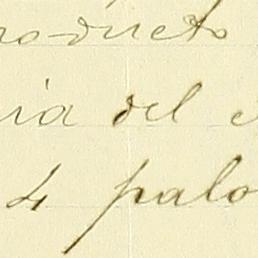 producto
ia del
4 palo